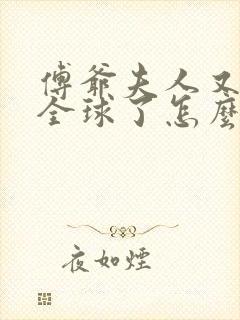 傅爺夫人又
全球了怎麼
夜如煙